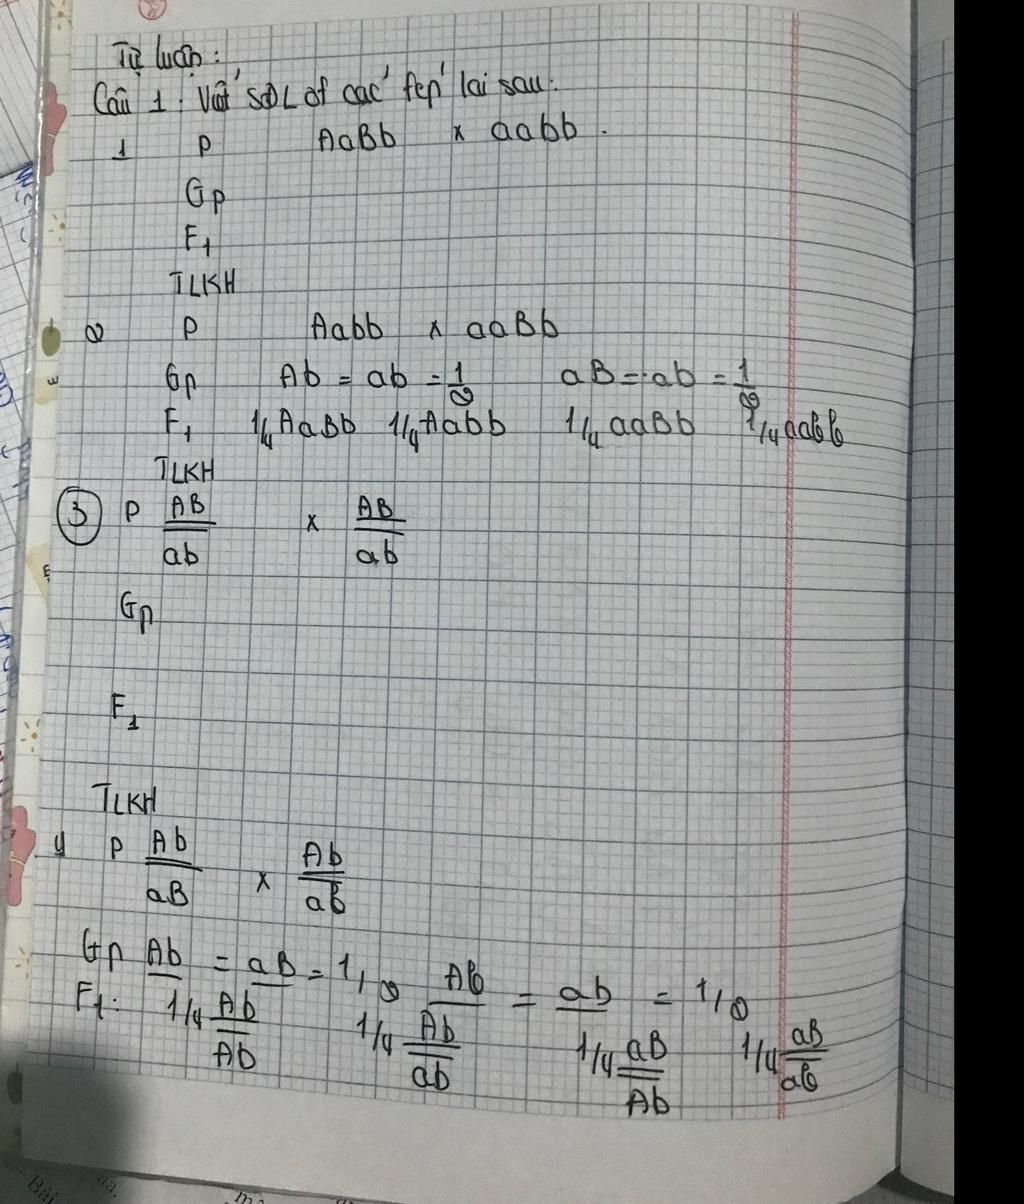 Tự luận:
Câu 1: Viết SĐL of các fép lai sau:
1 P AaBb x aabb.
Gp
F1
TLKH
2 P Aabb x aaBb
Gp Ab = ab = 1/2 aB = ab = 1/2
F1 1/4 AaBb 1/4 Aabb 1/4 aaBb 1/4 aabb
TLKH
3 P AB/ab x AB/ab
Gp
F1
TLKH
4 P Ab/aB x Ab/ab
Gp Ab = aB = 1/2 Ab = ab = 1/2
F1: 1/4 Ab/Ab 1/4 Ab/ab 1/4 aB/Ab 1/4 aB/ab